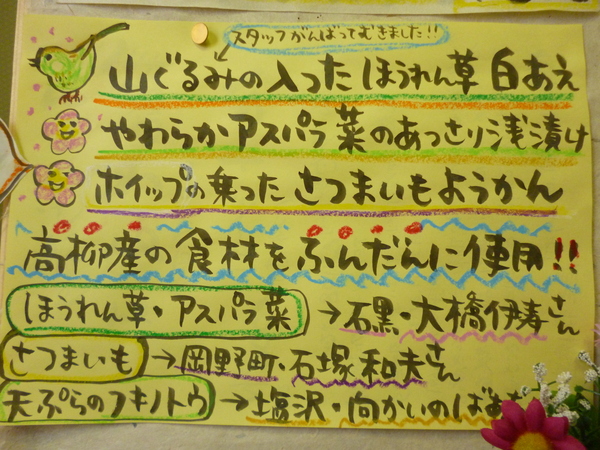 スタッフがんばってむきました!!
山ぐるみの入ったほうれん草白あえ
やわらかアスパラ菜のあっさり浅漬け
ホイップの乗ったさつまいもようかん
高柳産の食材をふんだんに使用!!
ほうれん草・アスパラ菜→石黒・大橋伊寿さん
さつまいも→岡野町・石塚和夫さん
天ぷらのフキノトウ→塩沢・向かいのばあ